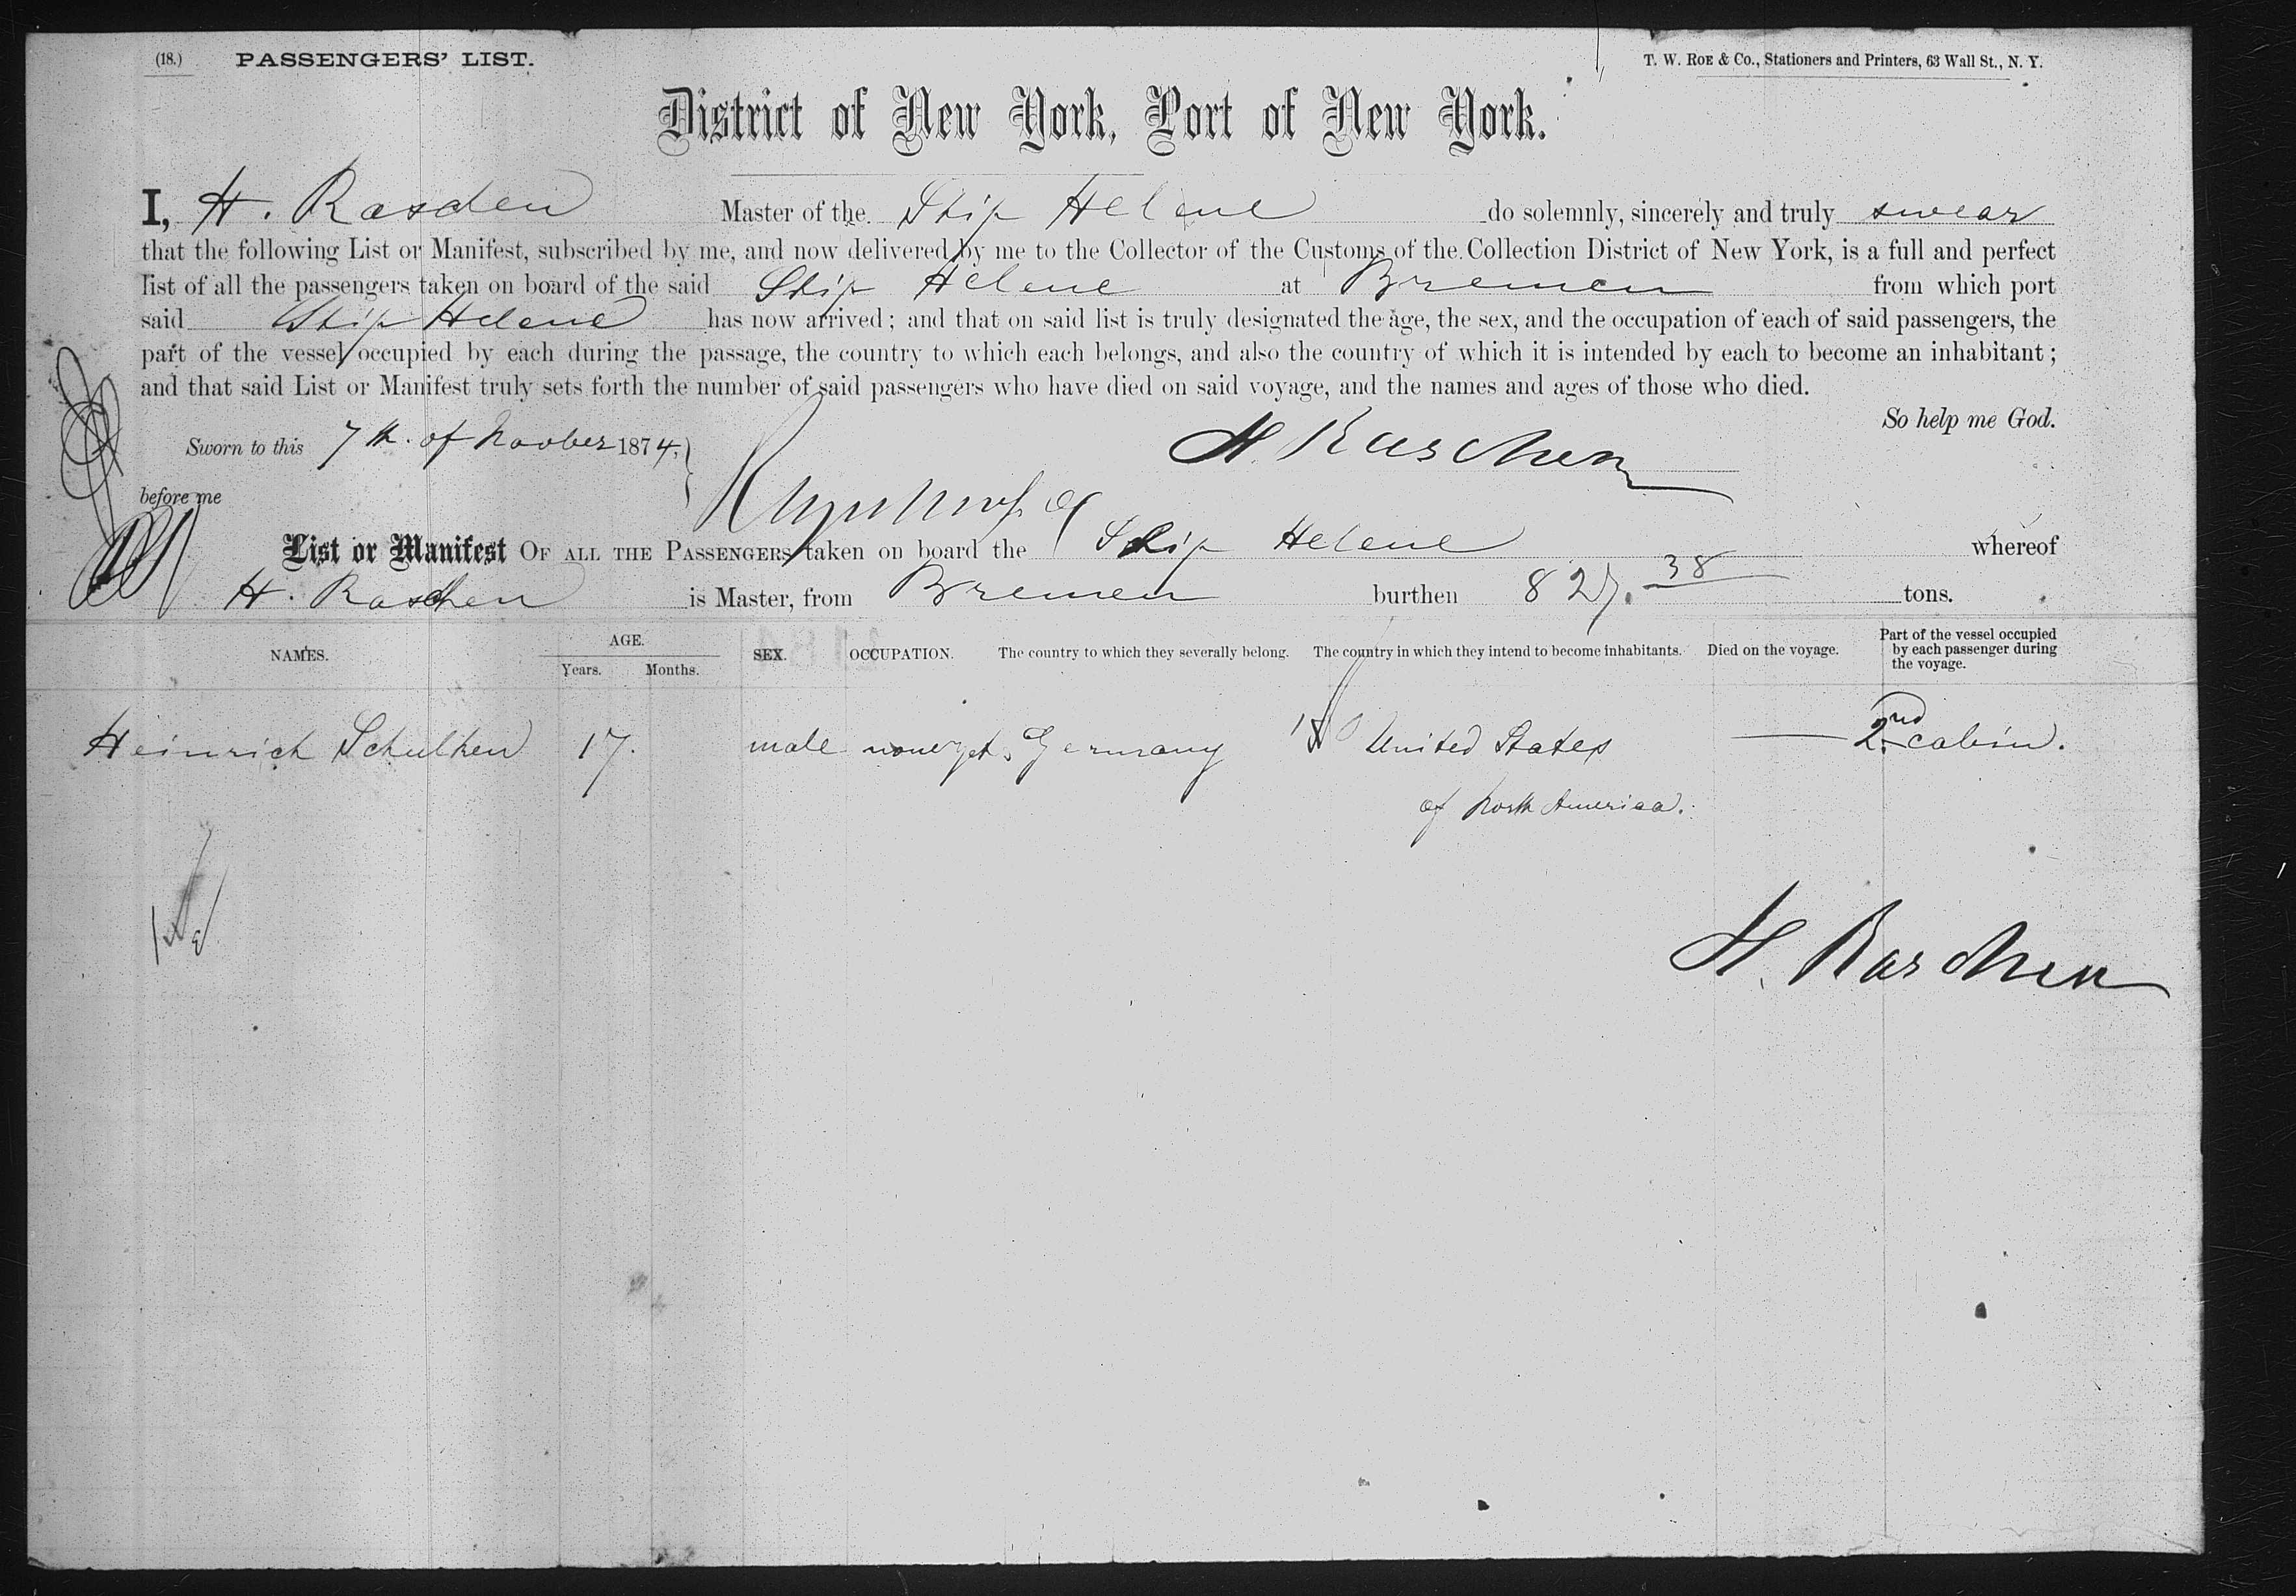 (18.) PASSENGERS' LIST. T. W. ROE & Co., Stationers and Printers, 63 Wall St., N. Y.
District of New York, Port of New York.
I, H. Rasden Master of the Ship Helene do solemnly, sincerely and truly swear
that the following List or Manifest, subscribed by me, and now delivered by me to the Collector of the Customs of the Collection District of New York, is a full and perfect
list of all the passengers taken on board of the said Ship Helene at Bremen from which port
said Ship Helene has now arrived; and that on said list is truly designated the age, the sex, and the occupation of each of said passengers, the
part of the vessel occupied by each during the passage, the country to which each belongs, and also the country of which it is intended by each to become an inhabitant;
and that said List or Manifest truly sets forth the number of said passengers who have died on said voyage, and the names and ages of those who died.
So help me God.
Sworn to this 7th. of Noober 1874, H. Raschen
before me
List or Manifest OF ALL THE PASSENGERS taken on board the Ship Helene whereof
H. Raschen is Master, from Bremen burthen 827. 38 tons.
NAMES. AGE. Years. Months. SEX. OCCUPATION. The country to which they severally belong. The country in which they intend to become inhabitants. Died on the voyage. Part of the vessel occupied by each passenger during the voyage.
Heinrich Schulken 17. male none yet. Germany United States — 2nd cabin.
of North America.
H. Raschen